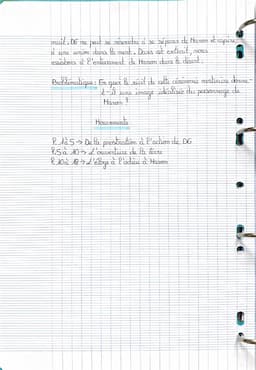 nuit. DG ne peut se résoudre à se séparer de Manon et aspire
à une union dans la mort. Dans cet extrait, nous
assistons à l'enterrement de Manon dans le désert.
Problématique : En quoi le récit de cette cérémonie mortuaire donne-
t-il une image idéalisée du personnage de
Manon ?
Mouvements
l. 1 à 5 → De la prostration à l'action de DG
l. 5 à 10 → L'ouverture de la fosse
l. 10 à 18 → L'éloge à l'adieu à Manon